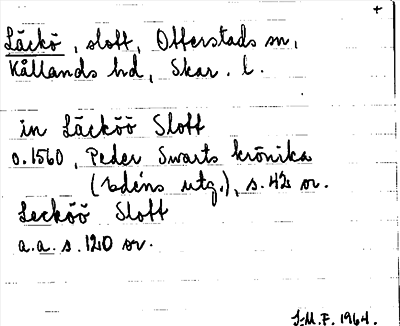 +
Läckö, slott, Otterstads sn,
Kållands hd, Skar. l.
in Läcköö Slott
o. 1560, Peder Swarts krönika
(Edéns utg.), s. 42 or.
Lecköö Slott
a.a. s. 120 or.
I.M.F. 1964.